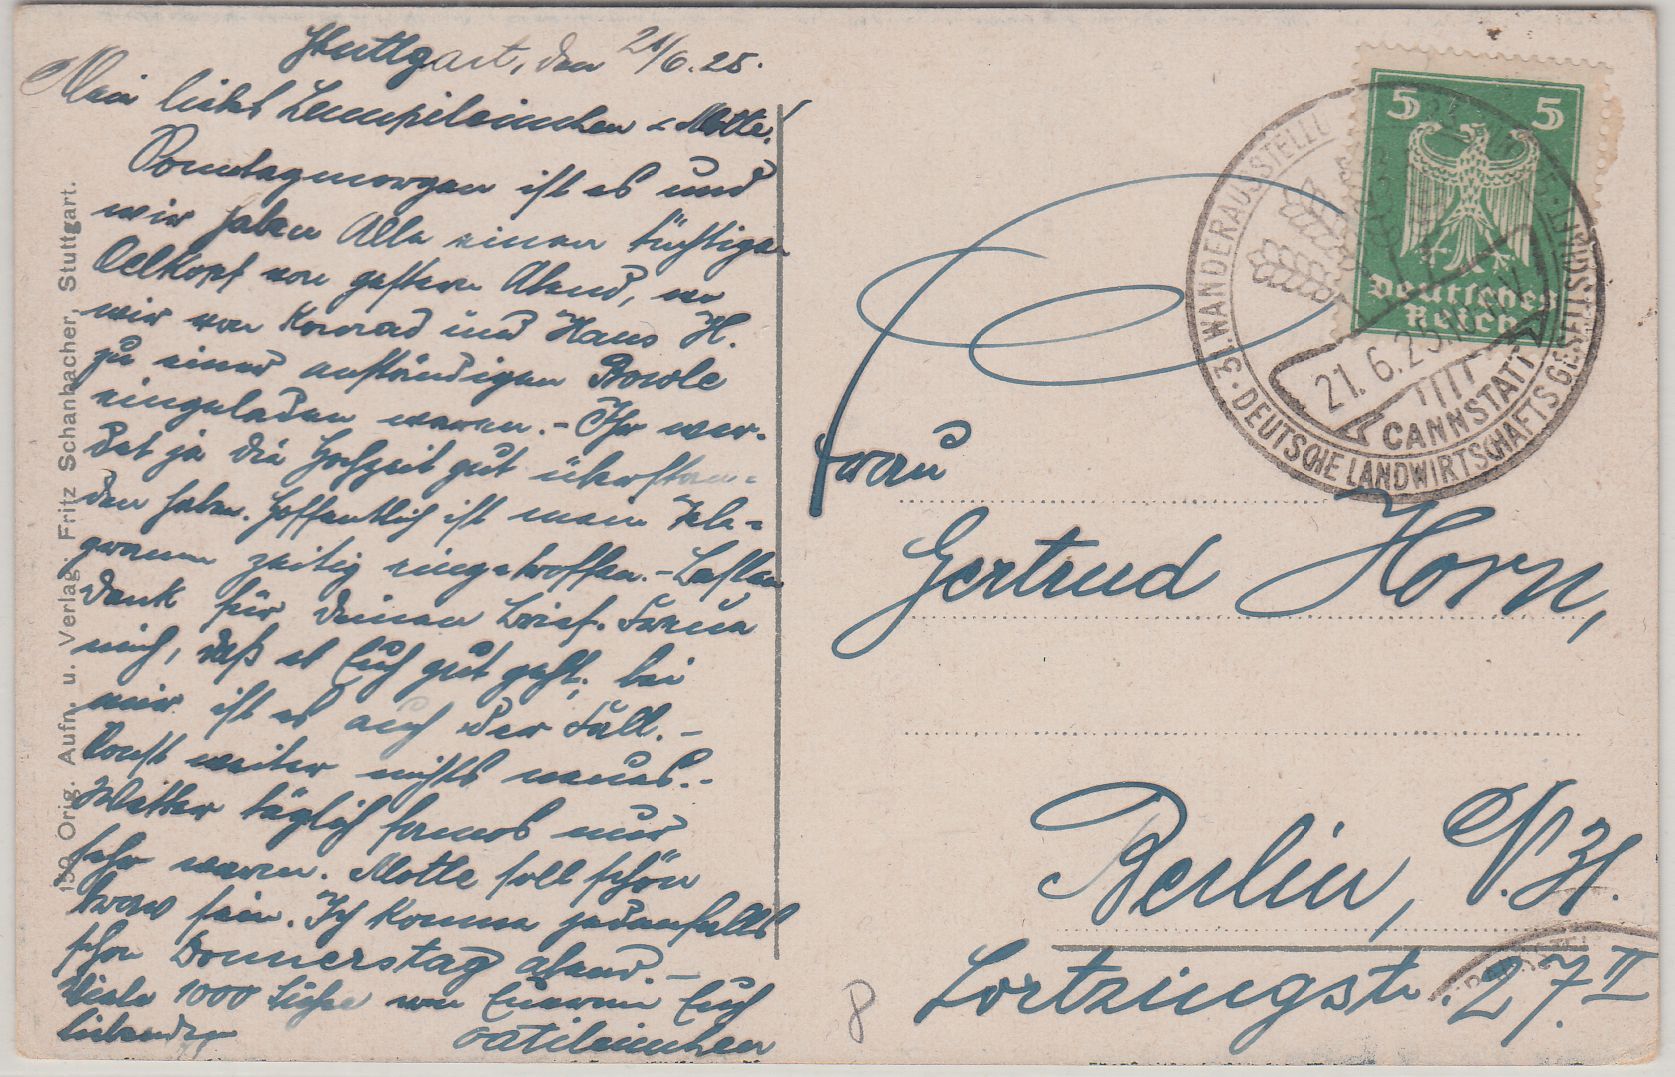 Stuttgart, den 21/6.25.
Mein liebes Lumpileinchen u. Motte!
Sonntagmorgen ist es und
wir haben Alle einen tüchtigen
Oelkopf von gestern Abend, wo
wir von Konrad und Hans H.
zu einer anständigen Bowle
eingeladen waren. – Ihr wer-
det ja die Hochzeit gut überstan=
den haben. Hoffentlich ist mein Tele=
gramm zeitig eingetroffen. – Besten
Dank für Deinen Brief. Freue
mich, daß es Euch gut geht; bei
mir ist es auch der Fall. –
Sonst weiter nichts neues. –
Wetter täglich famos nur
sehr warm. Motte soll schön
brav sein. Ich komme jedenfalls
schon Donnerstag abend. –
Viele 1000 Küsse von Eurem Euch
liebenden
Vatileinchen
150 Orig. Aufn. u. Verlag: Fritz Schanbacher, Stuttgart.
5 5
Deutsches
Reich
31. WANDERAUSSTELLUNG
DEUTSCHE LANDWIRTSCHAFTSGESELLSCHAFT
21.6.25.
CANNSTATT
Frau
Gertrud Horn,
Berlin, N. 31.
Lortzingstr. 27 II
8